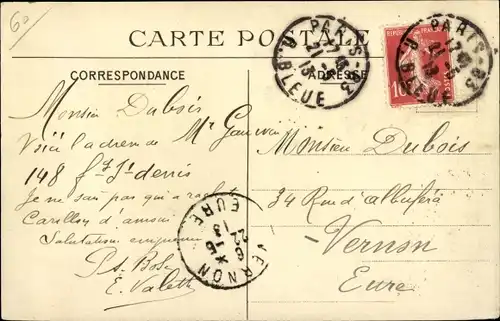 60
CARTE POSTALE
CORRESPONDANCE
ADRESSE
PARIS-83
R. BLEUE
PARIS-83
R. BLEUE
10
Monsieur Dubois
Voici l'adresse de Mr
148 fg St denis
Je ne sais pas qui a
Carillon d'amour
Salutation
E. Valette
VERNON
EURE
6
22-5
13
Monsieur Dubois
34 Rue d'albuféra
Vernon
Eure